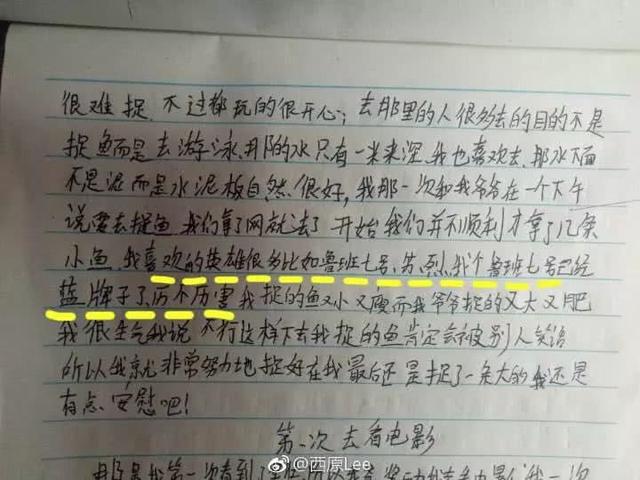 很难捉,不过都玩的很开心;去那里的人很多去的目的不是
捉鱼而是去游泳,那的水只有一米来深,我也喜欢去,那水下面
不是泥而是水泥板自然很好,我那一次和我爷爷在一个下午
说要去捉鱼,我们拿了网就去了 开始我们并不顺利才拿了几条
小鱼,我喜欢的英雄很多比如鲁班七号,苏烈,我个鲁班七号已经
蓝牌子了,厉不厉害我捉的鱼又小又瘦而我爷爷捉的又大又肥
我很生气我说 不行这样下去我捉的鱼肯定会被别人笑话
所以我就非常努力地捉好在我最后还是捉了一条大的我还是
有点安慰吧!
第一次去看电影
那是我第一次看到了
@西原Lee